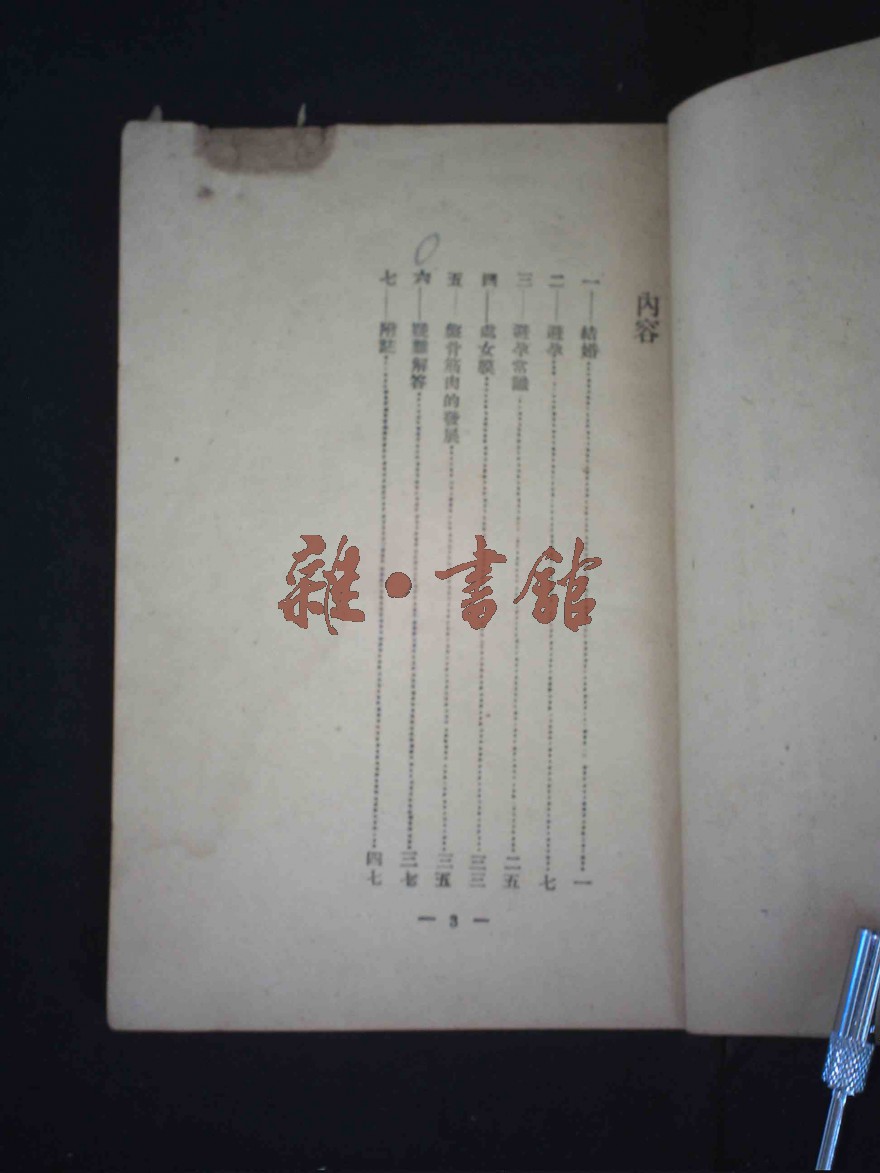 內容
一——結婚……一
二——避孕……七
三——避孕常識……二五
四——處女膜……三三
五——盤骨筋肉的發展……三五
六——疑難解答……三七
七——附誌……四七
— 3 —
雜·書館